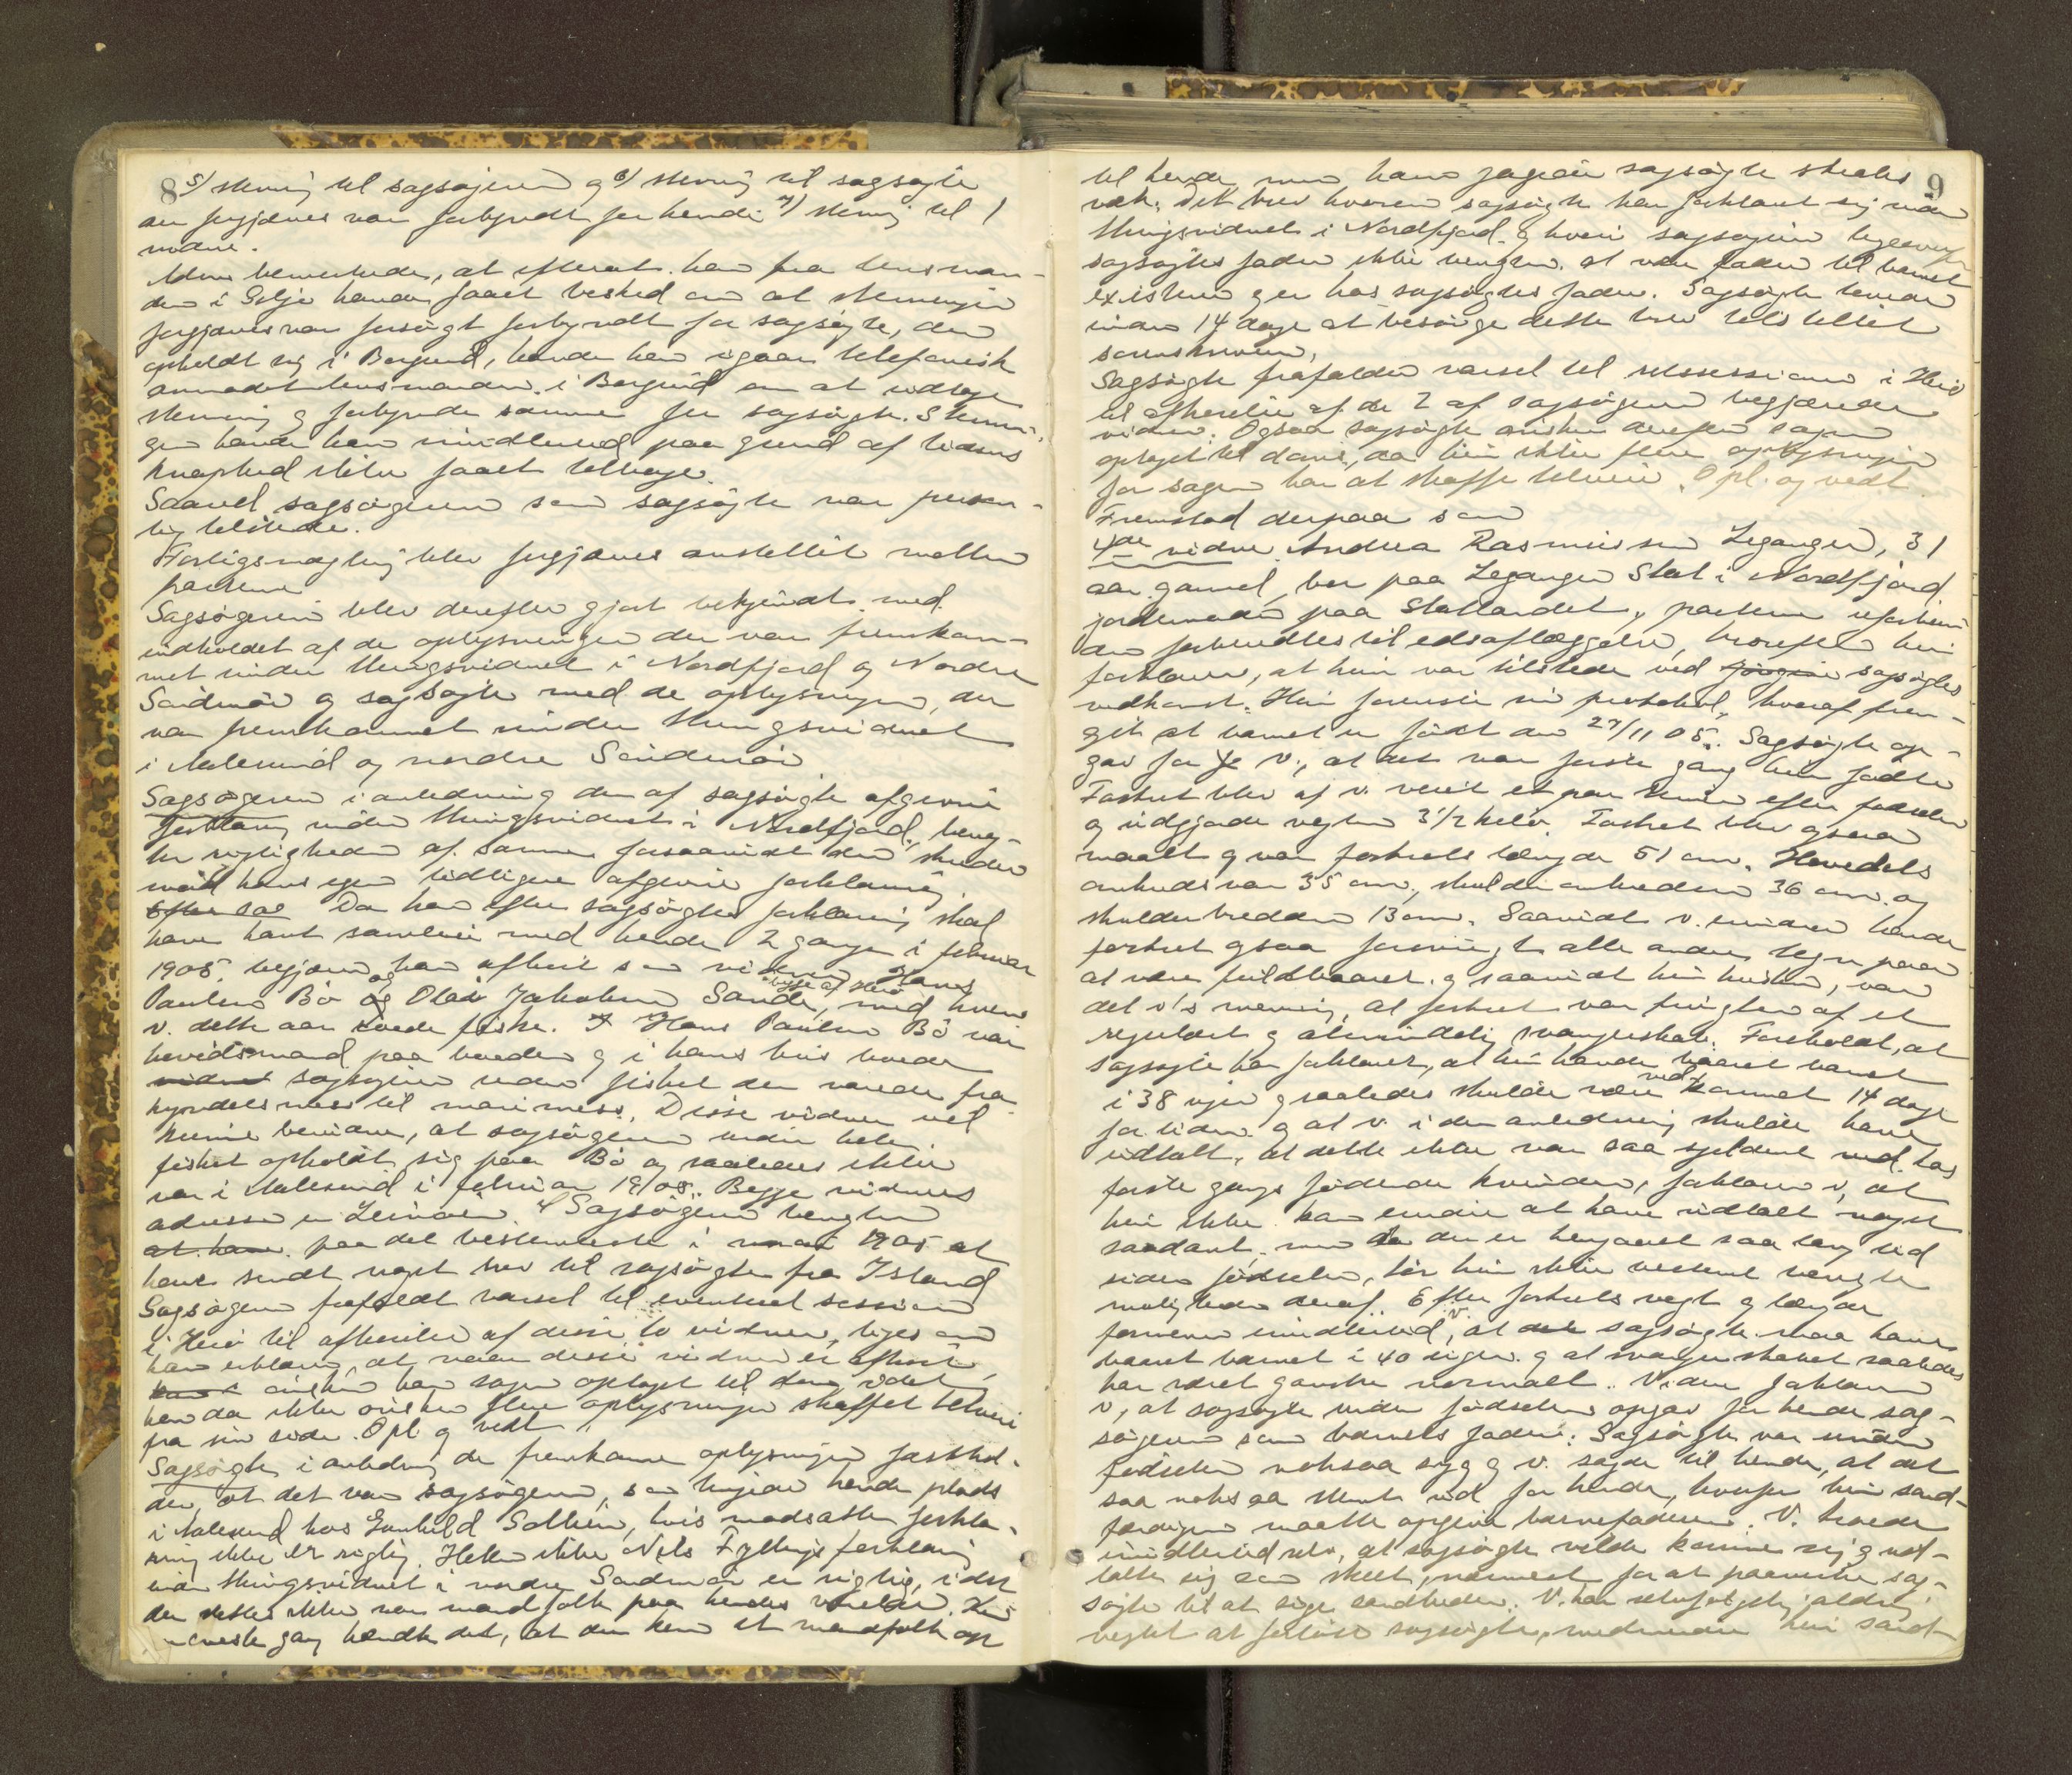 8
5/ stevning til sagsøgeren og 6/ stevning til sagsøgte
der forgjæves var forkyndt for hende 7/ stevning til 1
vidne.
Adm. bemerkede, at efterat han fra lensman-
den i Selje havde faaet besked om at stevningen
forgjæves var forsøgt forkyndt for sagsøgte, der
opholdt sig i Borgund, havde han igaar telefonisk
anmodet lensmanden i Borgund om at udtage
stevning og forkynde samme for sagsøgte. Stevnin-
gen havde han imidlertid paa grund af tidens
knaphed ikke faaet tilbage.
Saavel sagsøgeren som sagsøgte var person-
lig tilstede.
Forligsmægling blev forgjæves anstillet mellem
parterne
Sagsøgeren blev derefter gjort bekjendt med
indholdet af de oplysninger der var fremkom-
met under thingsvidnet i Nordfjord og Nordre
Søndmør og sagsøgte med de oplysninger, der
var fremkommet under thingsvidnet
i Aalesund og nordre Søndmør
Sagsøgeren i anledning den af sagsøgte afgivne
forklaring under thingsvidnet i Nordfjord, beneg-
ter rigtigheden af samme forsaavidt den strider
mod hans egen tidligere afgivne forklaring.
Efter sag Da han efter sagsøgtes forklaring skal
have havt samleie med hende 2 gange i februar
1905, begjærer han afhørt som vidner Hans
Paulsen Bø og Olai Jakobsen Sande, begge af Herø med hvem
v. dette aar roede fiske. Hans Paulsen Bø var
høvidsmand paa baaden og i hans hus boede
vidnet sagsøgeren under fisket der varede fra
kyndelsmess til marimess. Disse vidner vil
kunne bevidne, at sagsøgeren under hele
fisket opholdt sig paa Bø og saaledes ikke
var i Aalesund i februar 1905. Begge vidners
adresse er Leinøen. Sagsøgeren benegter
at have paa det bestemteste i mai 1905 at
have sendt noget brev til sagsøgte fra Island
Sagsøgeren frafaldt varsel til eventuel session
i Herø til afhørelse af disse to vidner, ligesom
han erklærer, at naar disse vidner er afhørt,
ønsker han sagen optaget til dom, idet
han da ikke ønsker flere oplysninger skaffet tilveie
fra sin side. Opl. og vedt.
Sagsøgte i anledning de fremkomne oplysninger fasthol-
der, at det var sagsøgeren, som hyrede hende plads
i Aalesund hos Gunhild Solheim, hvis modsatte forkla-
ring ikke er rigtig. Heller ikke Nils Fyllings forklaring
under thingsvidnet i nordre Søndmør er rigtig, idet
der slettes ikke var mandfolk paa hendes værelse. Kun
eneste gang hændte det, at der kom et mandfolk op
9
til hende, men ham jagede sagsøgte straks
væk. Det brev hvorom sagsøgte har forklaret sig under
thingsvidnet i Nordfjord og hvori sagsøgeren ligeoverfor
sagsøgtes fader ikke benegter at være fader til barnet
existerer og er hos sagsøgtes fader. Sagsøgte lovede
inden 14 dage at besørge dette brev tilstillet
sorenskriveren.
Sagsøgte frafalder varsel til retssessionen i Herø
til afhørelse af de 2 af sagsøgeren begjærede
vidner. Ogsaa sagsøgte ønsker derefter sagen
optaget til doms, da hun ikke flere oplysninger
for sagen har at skaffe tilveie. Opl. og vedt.
Fremstod derpaa som
4de vidne Andrea Rasmussen Leganger, 31
aar gammel, bor paa Leganger Stat i Nordfjord
jordemoder paa Statlandet, parterne ubeslægtet
den forberedtes til edsaflæggelse, hvorefter hun
forklarer, at hun var tilstede ved sagsøgtes
nedkomst. Hun foreviste sin protokol, hvoraf frem-
gik at barnet er født den 27/11 05. Sagsøgte op-
gav for v., at det var første gang hun fødte
Fostret blev af v. veiet et par timer efter fødselen
og udgjorde vegten 3 1/2 kilo. Fostret blev ogsaa
maalt og var fostrets længde 51 cm. Hovedets
omkreds var 35 cm., skulderomkredsen 36 cm. og
skulderbredden 13 cm. Saavidt v. erindrer havde
fostret ogsaa forøvrigt alle andre tegn paa
at være fuldbaaret og saavidt hun husker, var
det v's mening, at fostret var frugten af et
regulært og almindelig svangerskab. Foreholdt, at
sagsøgte har forklaret, at hun havde baaret barnet
i 38 uger og saaledes skulde være nedkommet 14 dage
før tiden og at v. i den anledning skulde have
udtalt, at dette ikke var saa sjeldent ved hos
første gangs fødende kvinder, forklarer v, at
hun ikke kan erindre at have udtalt noget
saadant, men da der er hengaaet saa lang tid
siden fødselen, tør hun ikke bestemt negte
muligheden deraf. Efter fostrets vegt og længde
formener imidlertid v., at sagsøgte maa have
baaret barnet i 40 uger og at svangerskabet saaledes
har været ganske normalt. Videre forklarer
v, at sagsøgte under fødselen opgav for hende sag-
søgeren som barnets fader. Sagsøgte var under
fødselen noksaa syg og v. sagde til hende, at det
saa noksaa sterkt ud for hende, hvorfor hun sand-
færdigen maatte opgive barnefaderen. V. troede
imidlertid selv, at sagsøgte vilde komme sig og ud-
talte sig som skeet, nærmest for at paavirke sag-
søgte til at sige sandheden. V. har selvfølgelig aldrig
negtet at forløse sagsøgte, medmindre hun sand-